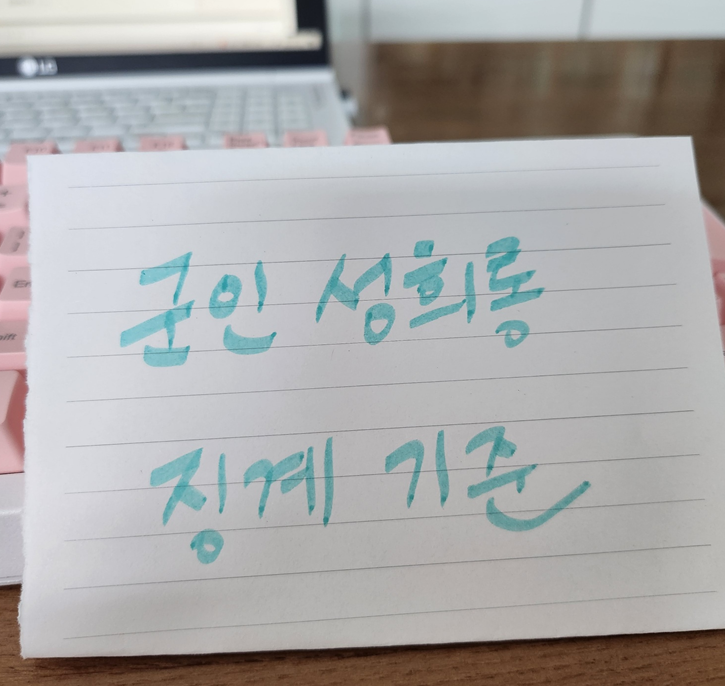 LG
군인 성희롱
징계 기준